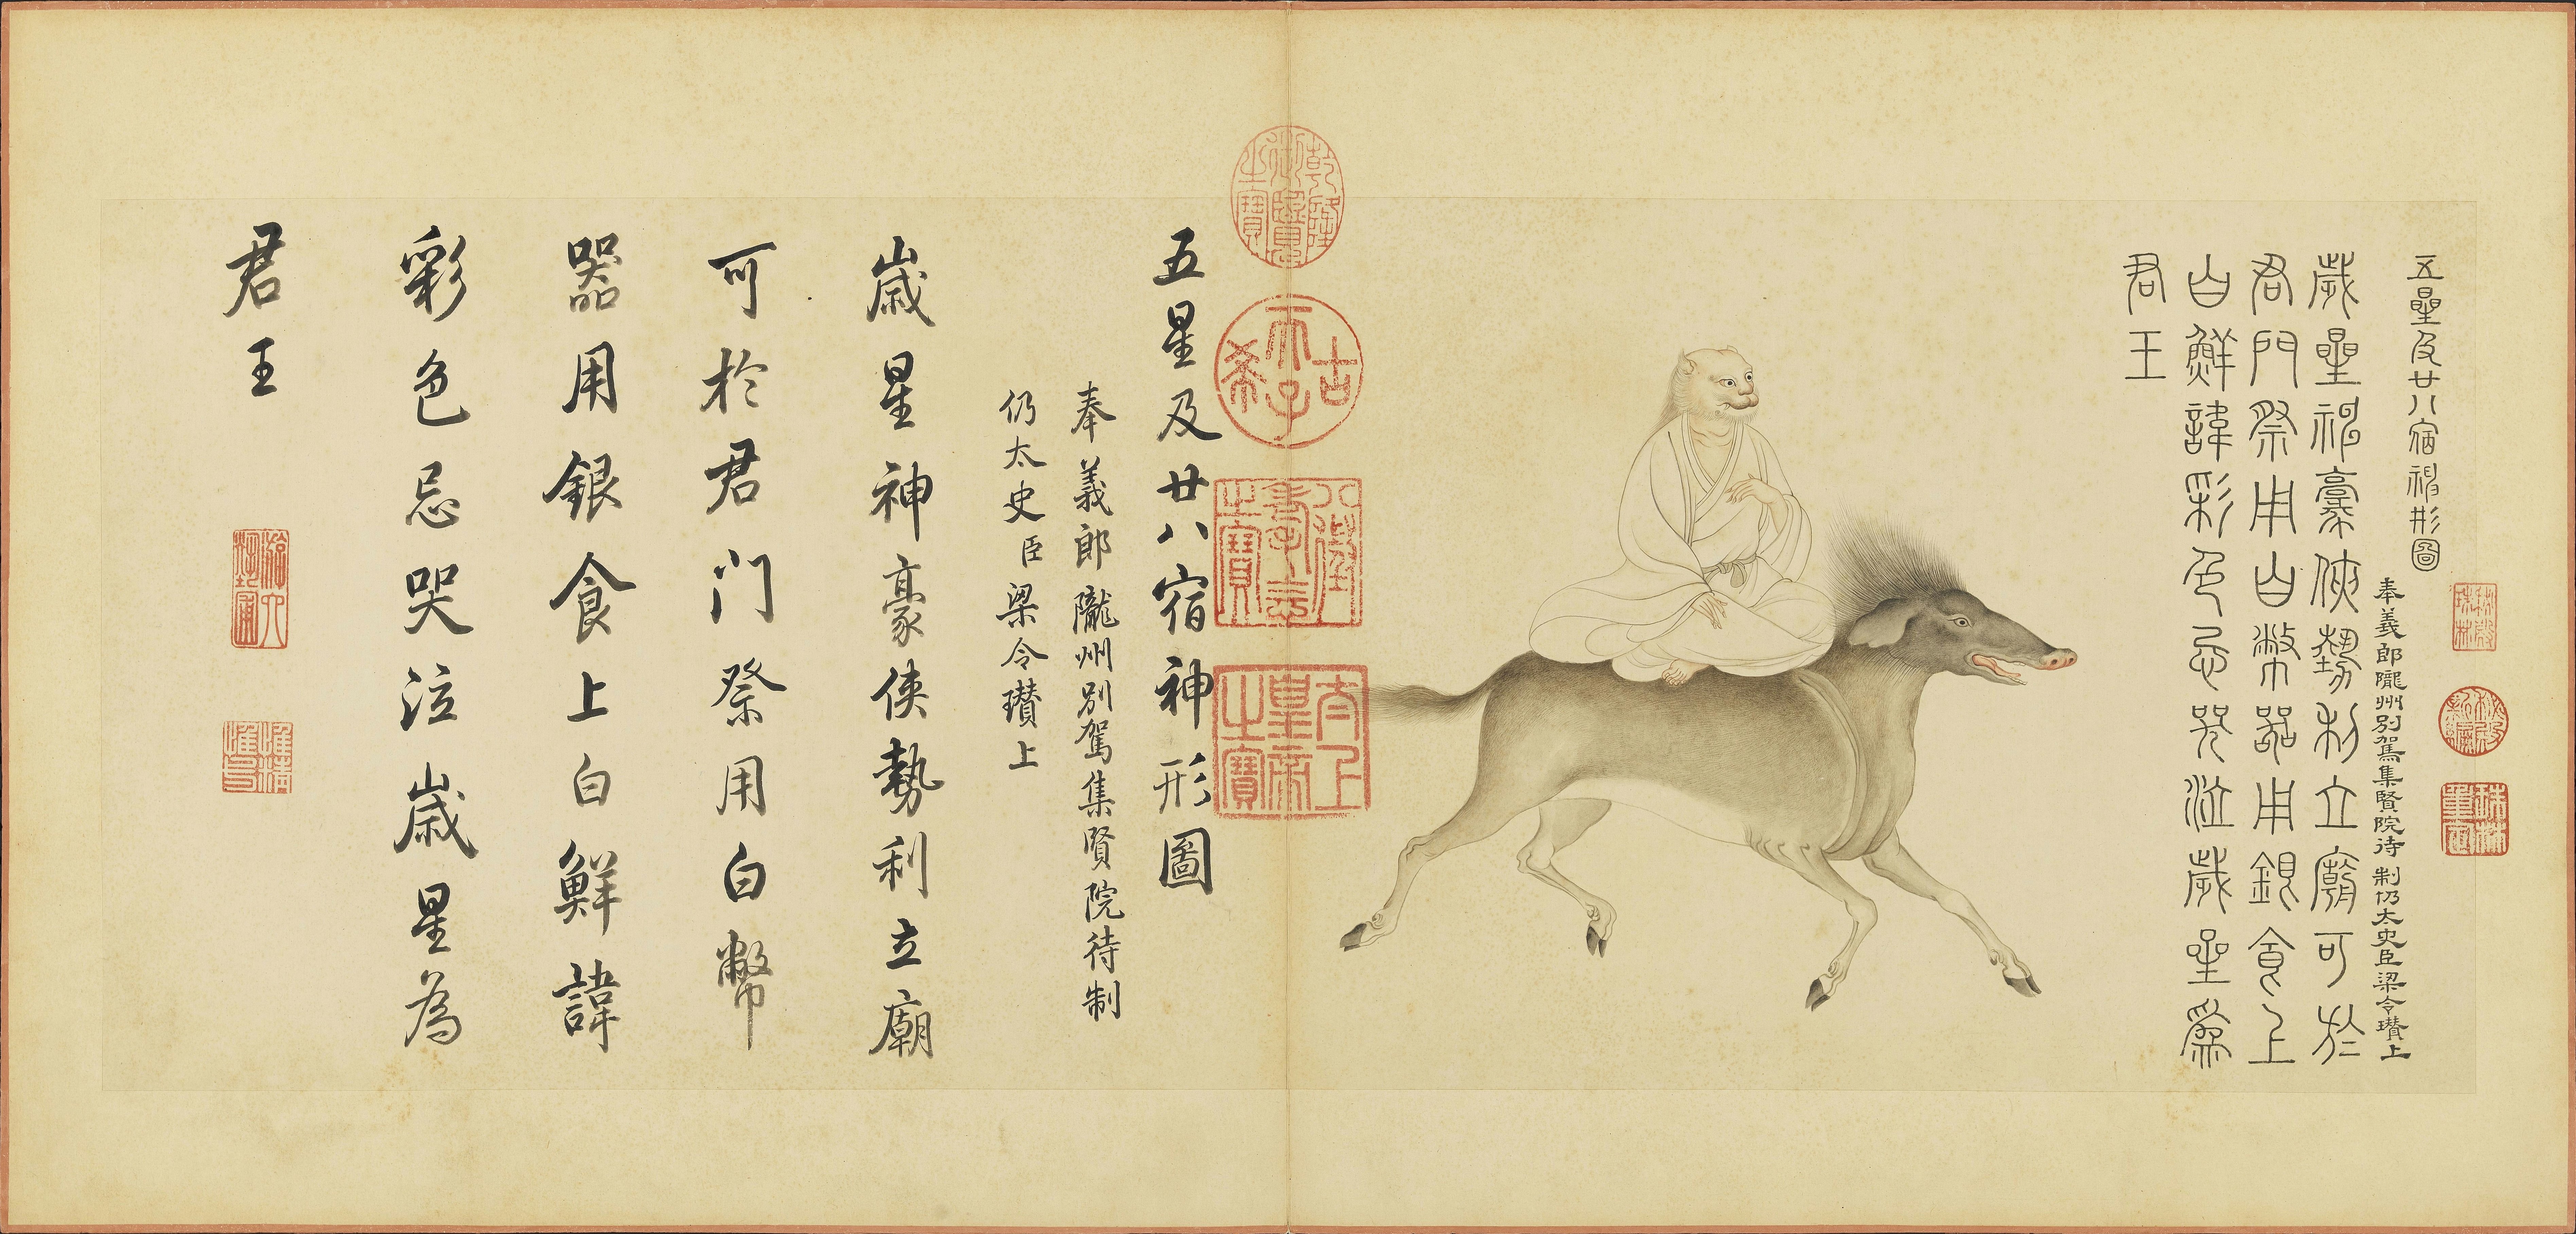 五星及廿八宿神形圖
奉義郎隴州別駕集賢院待制仍太史臣梁令瓚上
歲星神豪俠勢利立廟可於
君門祭用白幣器用銀食上
白鮮諱彩色忌哭泣歲星為
君王
乾隆御覽之寶
古希天子
八徵耄念之寶
太上皇帝之寶
五星及廿八宿神形圖
奉義郎隴州別駕集賢院待制
仍太史臣梁令瓚上
歲星神豪俠勢利立廟
可於君門祭用白幣
器用銀食上白鮮諱
彩色忌哭泣歲星為
君王